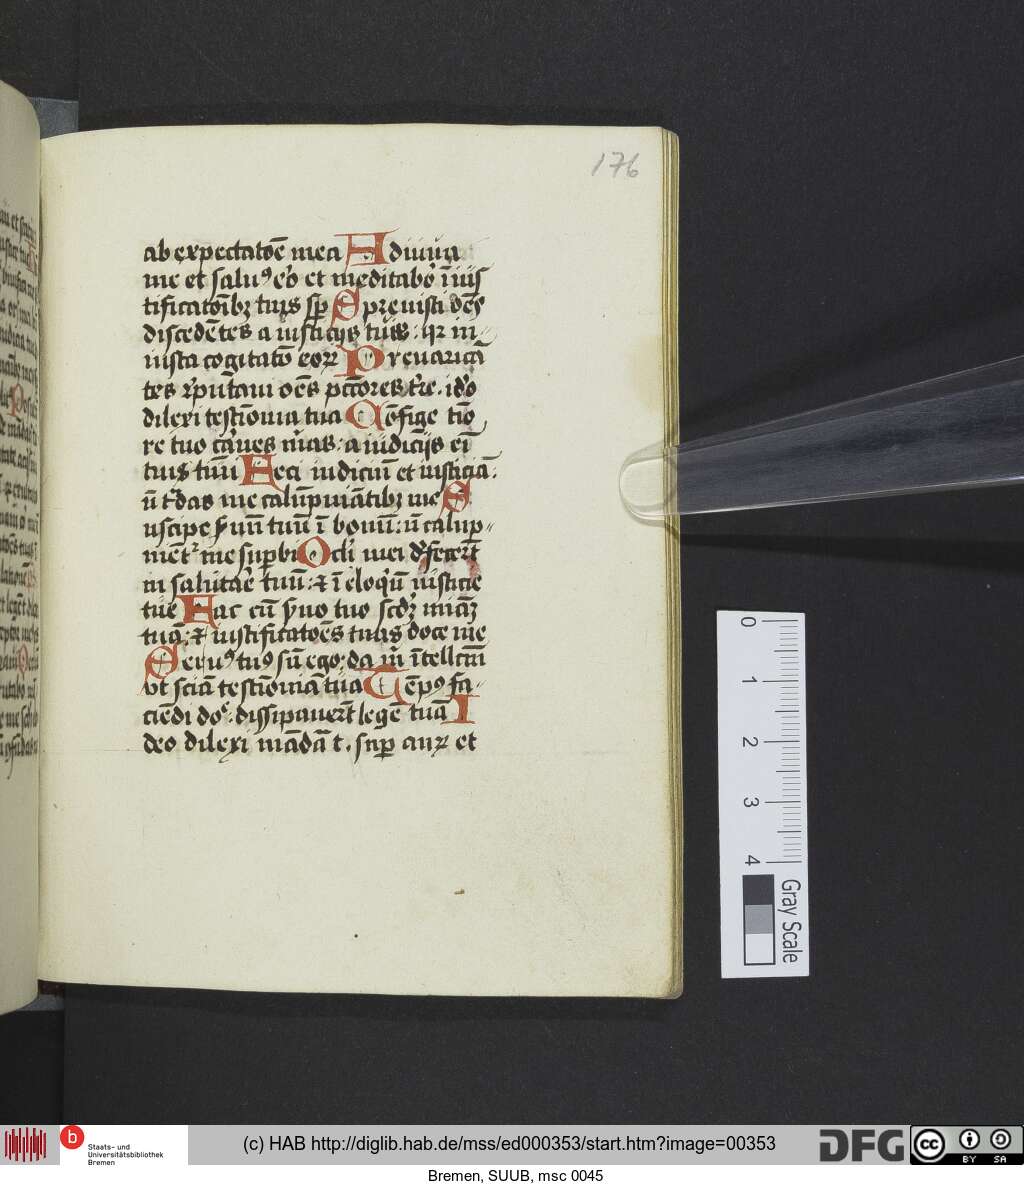 176
ab expectatōe mea Adiuua
me et saluꝰ ero et meditabor ī ius
tificatōibꝫ tuis sꝑ Spreuisti oēs
discedētes a iusticijs tuis: qr in
iusta cogitatō eoꝝ Preuaricā
tes reputaui oēs pctores tre. ideo
dilexi testimonia tua Cōfige timo
re tuo carnes meas: a iudicijs em
tuis timui Feci iudiciū et iusticiā:
nō tradas me calūpniātibꝫ me S
uscipe seruū tuū ī bonū: nō calup
nient me superbi Oculi mei defecert
in salutare tuū: et ī eloquiū iusticie
tue Fac cū seruo tuo scdm miam
tuā: et iustificatōes tuas doce me
Seruꝰ tuꝰ sū ego: da mi ītellcm
vt sciā testimonia tua Tēpꝰ fa
ciēdi doe: dissipauert legē tuā I
deo dilexi mādata t. super auꝝ et
0
1
2
3
4
Gray Scale
b Staats- und
Universitätsbibliothek
Bremen
(c) HAB http://diglib.hab.de/mss/ed000353/start.htm?image=00353
DFG
cc BY SA
Bremen, SUUB, msc 0045